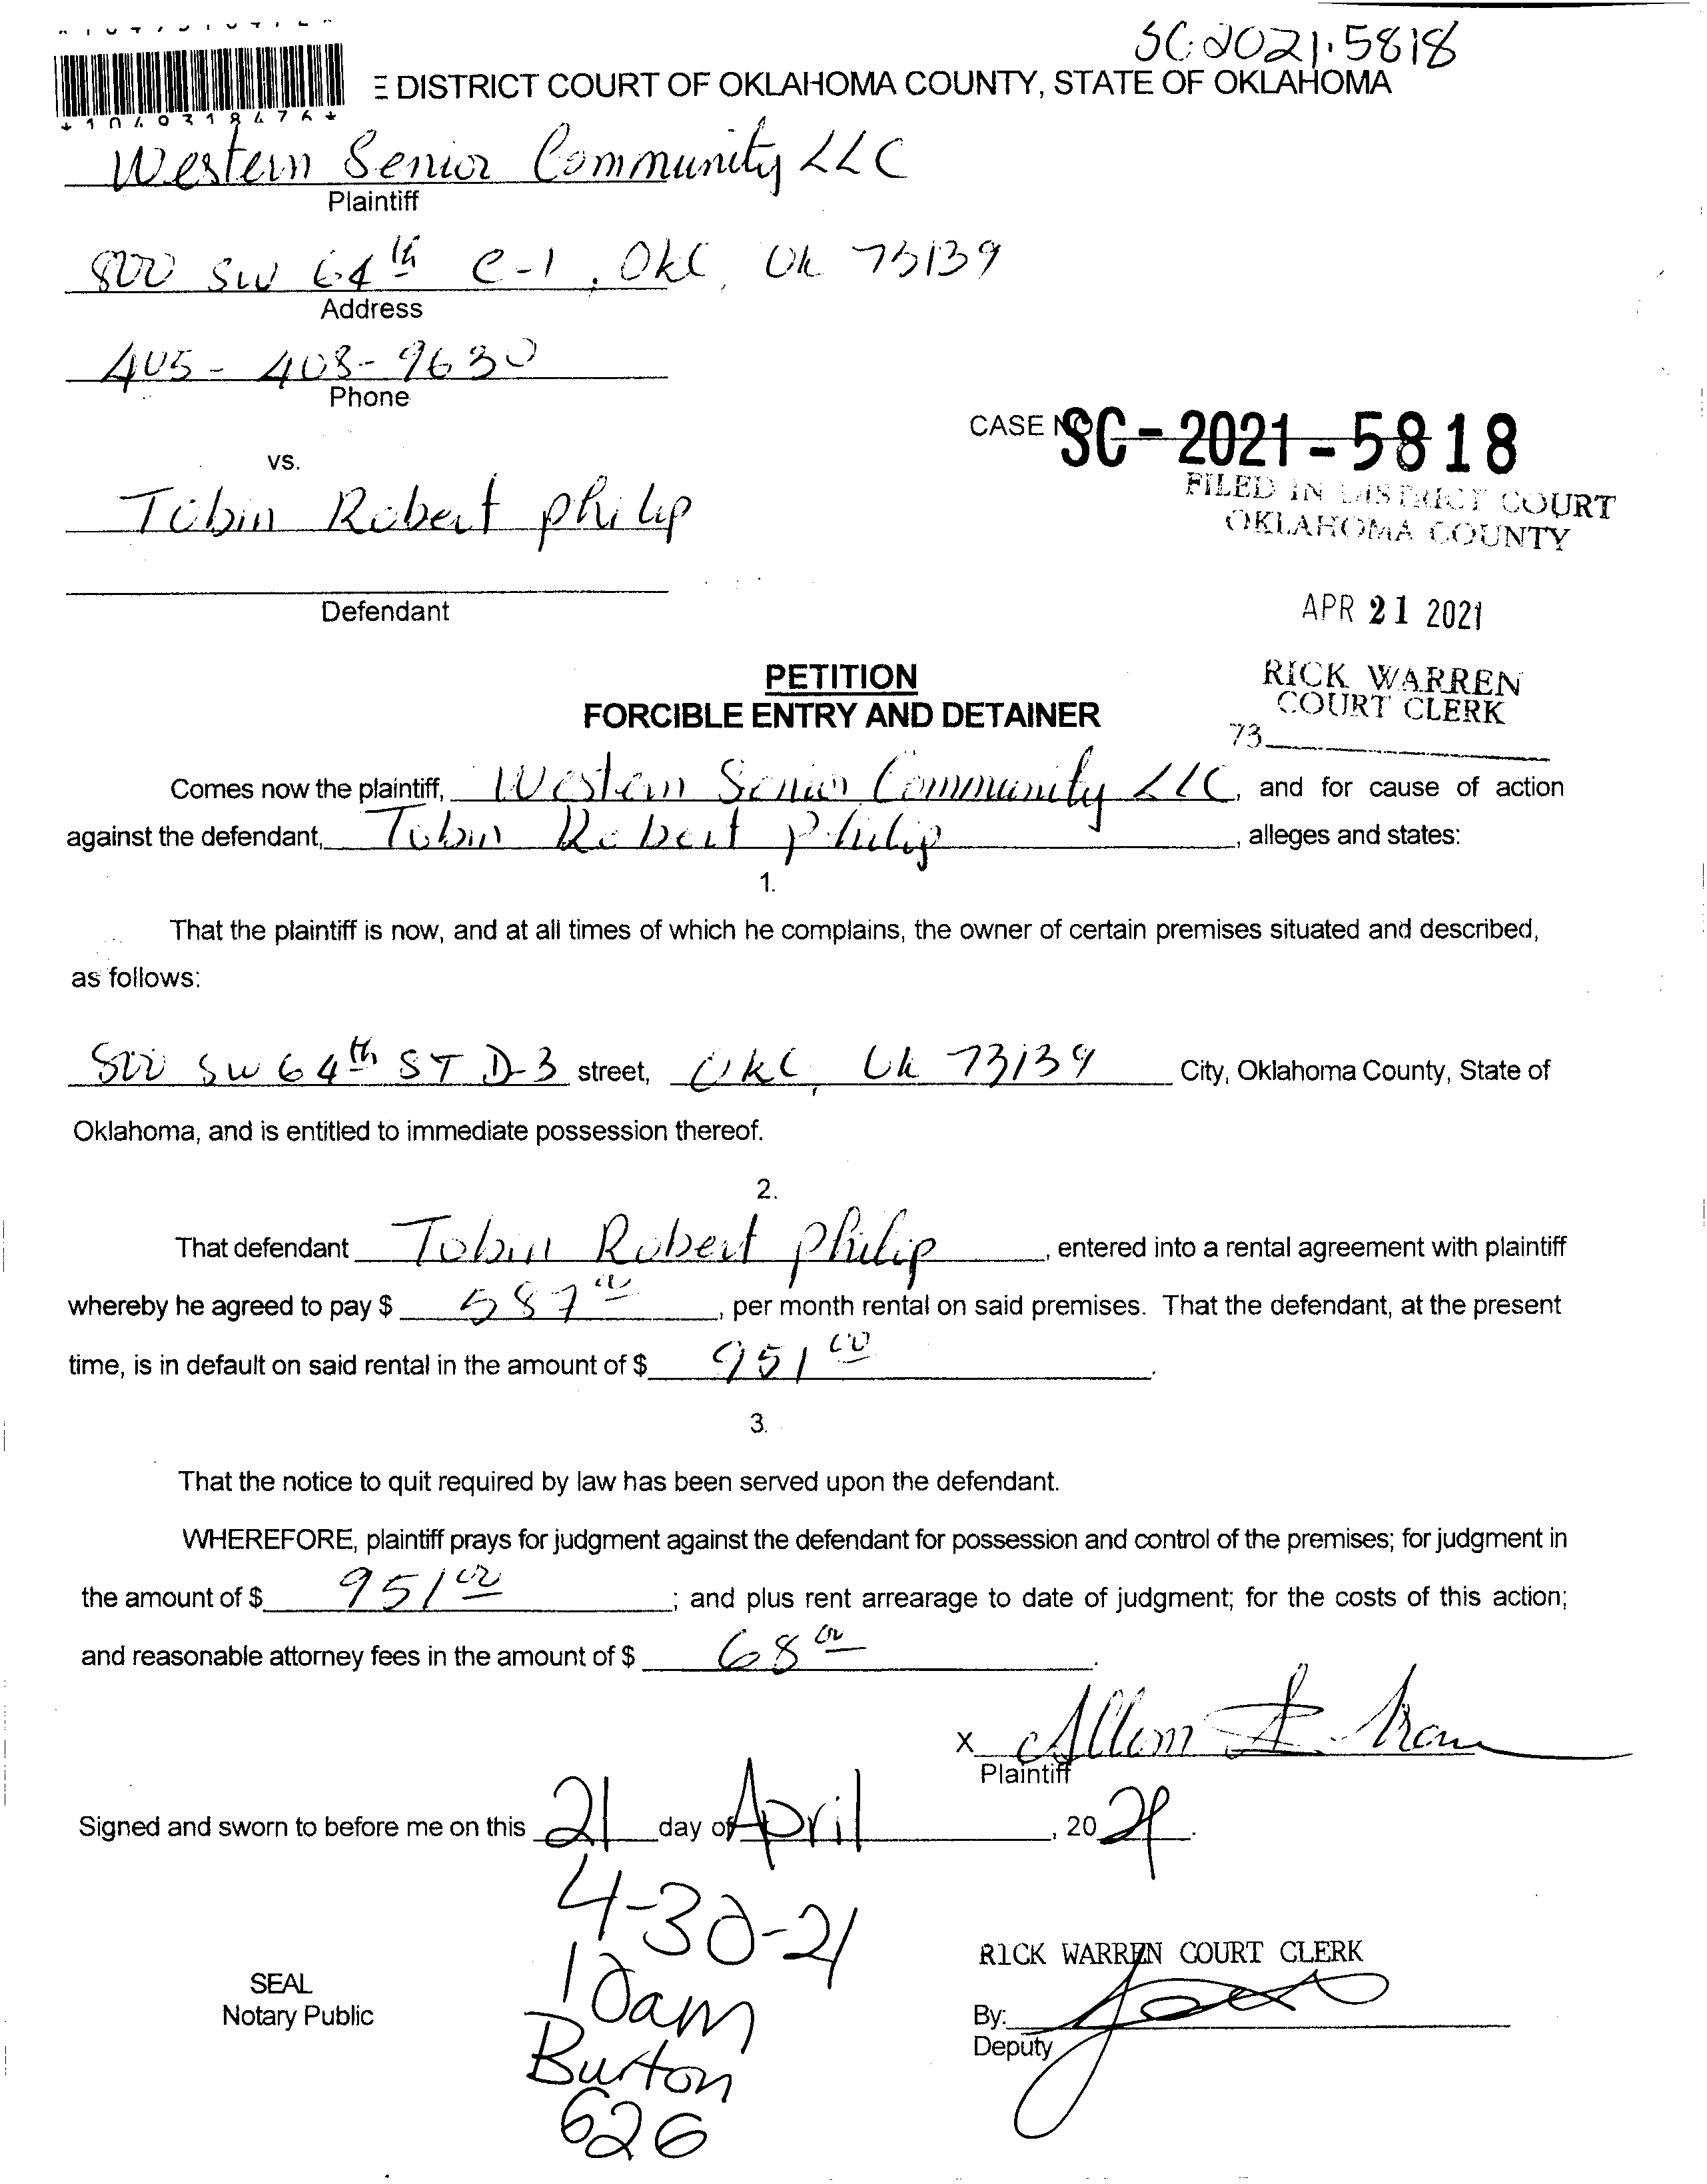 SC-2021-5818
E DISTRICT COURT OF OKLAHOMA COUNTY, STATE OF OKLAHOMA
*1049318476*
Western Senior Community LLC
Plaintiff
800 SW 64th C-1, OKC, Ok 73139
Address
405-408-9630
Phone
CASE NO SC-2021-5818
FILED IN DISTRICT COURT
OKLAHOMA COUNTY
vs.
Tobin Robert Philip
Defendant
APR 21 2021
RICK WARREN
COURT CLERK
73
PETITION
FORCIBLE ENTRY AND DETAINER
Comes now the plaintiff, Western Senior Community LLC, and for cause of action
against the defendant, Tobin Robert Philip, alleges and states:
1.
That the plaintiff is now, and at all times of which he complains, the owner of certain premises situated and described,
as follows:
800 SW 64th ST D-3 street, OKC, Ok 73139 City, Oklahoma County, State of
Oklahoma, and is entitled to immediate possession thereof.
2.
That defendant Tobin Robert Philip, entered into a rental agreement with plaintiff
whereby he agreed to pay $ 587 00, per month rental on said premises. That the defendant, at the present
time, is in default on said rental in the amount of $ 951 00.
3.
That the notice to quit required by law has been served upon the defendant.
WHEREFORE, plaintiff prays for judgment against the defendant for possession and control of the premises; for judgment in
the amount of $ 951 00; and plus rent arrearage to date of judgment; for the costs of this action;
and reasonable attorney fees in the amount of $ 68 00.
X
Plaintiff
Signed and sworn to before me on this 21 day of April, 2021.
4-30-21
10am
Burton
626
SEAL
Notary Public
RICK WARREN COURT CLERK
By:
Deputy